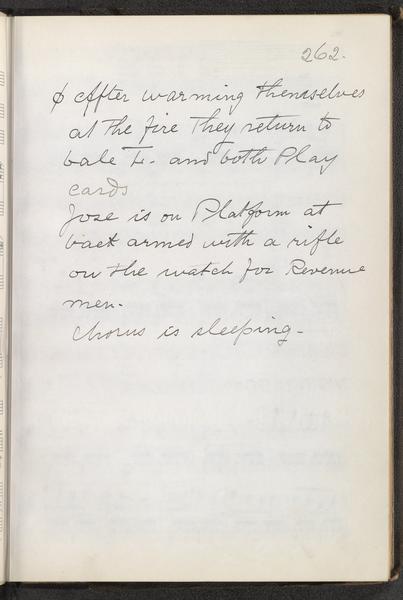 262.
φ After warming themselves
at the fire They return to
bale L. and both Play
cards
Jose is on Platform at
back armed with a rifle
on the watch for Revenue
men.
Chorus is sleeping.